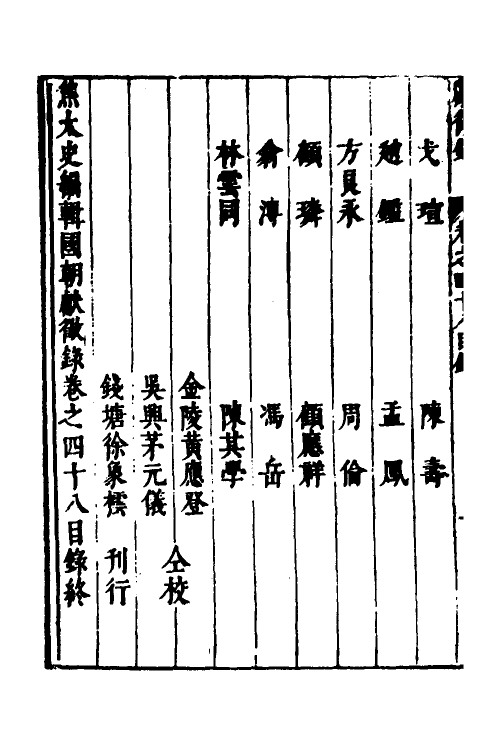 獻徵錄　卷之四十八目錄
戈　瑄　陳　壽
趙　鑑　孟　鳳
方良永　周　倫
顧　璘　顧應祥
俞　溥　馮　岳
林雲同　陳其學
金陵黃應登
吳興茅元儀　仝校
錢塘徐象橒　刊行
焦太史編輯國朝獻徵錄卷之四十八目錄終